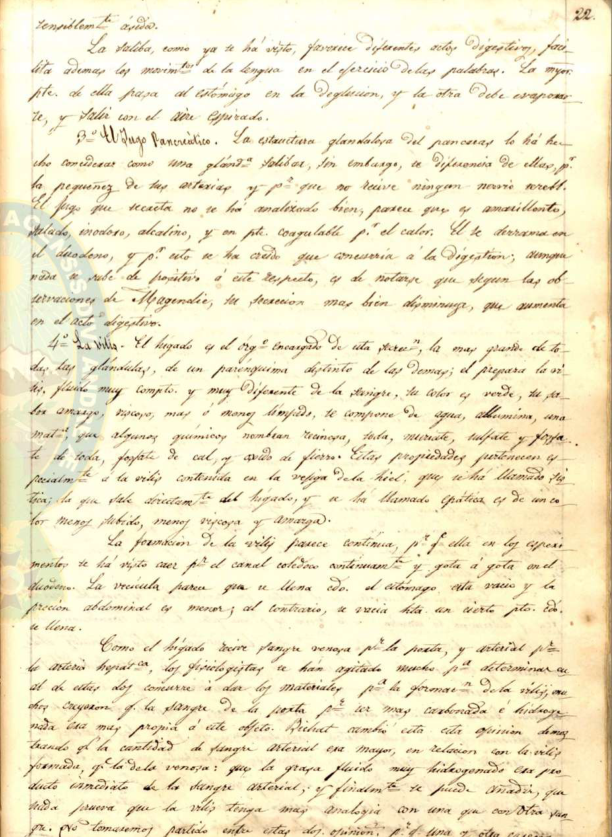 22.
sensiblemte. acido.
La saliba, como ya se há visto, favorece diferentes actos digestivos, faci-
lita ademas los movimtos. de la lengua en el ejercicio de las palabras. La myor.
pte. de ella pasa al estómago en la deglusion, y la otra debe evaporar-
se, y salir con el aire espirado.
3º. El Jugo Pancreático. La estructura glandulosa del pancreas lo há he-
cho concederar como una glánda. salibar, sin embargo, se diferencia de ellas, pr.
la pequeñez de sus arterias y pr. que no recive ningun nervio serebl.
El jugo que secreta no se há analizado bien, parece que es amarillento,
salado, inodoro, alcalino, y en pte. coagulable pr. el calor. El se derrama en
el duodeno, y pr. esto se ha creido que concurria á la digestion; aunque
nada se sabe de positivo á este respecto, es de notarse que segun las ob-
servaciones de Magendie, su secrecion mas bien disminuye, que aumenta
en el acto digestivo.
4º. La vilis. El higado es el orgo. encargado de esta secren., la mas grande de to-
das las glandulas, de un parenquima distinto de las demas; el prepara la vi-
lis, fluido muy compto. y muy diferente de la sangre, su color es verde, su sa-
bor amargo, viscoso, mas o menos limpido, se compone de agua, albumina, una
mata. que algunos químicos nombran recinosa, soda, muriate, sulfate y fosfa-
te de soda, fosfate de cal, y oxido de fierro. Estas propiedades pertenecen es-
pecialmte. á la vilis contenida en la vejiga de la hiel, que se há llamado sis-
tica; la que sale directamte. del higado, y se ha llamado epática es de un co-
lor menos subido, menos viscosa y amarga.
La formacion de la vilis parece continua, pr. q. ella en los esperi-
mentos se há visto caer pr. el canal coledoco continuamte. y gota á gota en el
duodeno. La vecicula parece que se llena cdo. el estómago está vacio y la
precion abdominal es menor; al contrario, se vacia hta. un cierto pto. cdo.
se llena.
Como el higado recive sangre venosa pr. la porta, y arterial pr.
la arteria hepatca., los fisiologistas se han agitado mucho pa. determinar cu-
al de estas dos concurre á dar los materiales pa. la formacn. de la vilis, mu-
chos creyeron q. la sangre de la porta pr. ser mas carbonada e hidroge-
nada era mas propia á este objeto. Bichat cambió esta opinion demos-
trando q. la cantidad de sangre arterial era mayor, en relacion con la vilis
formada, q. la de la venosa: que la grasa fluido muy hidrogenado era pro-
ducto inmediato de la sangre arterial; y finalmte. se puede añadir, que
nada prueva que la vilis tenga mas analogia con una que con otra san-
gre. No tomaremos partido entre estas dos opinion; pr. q. una y otra